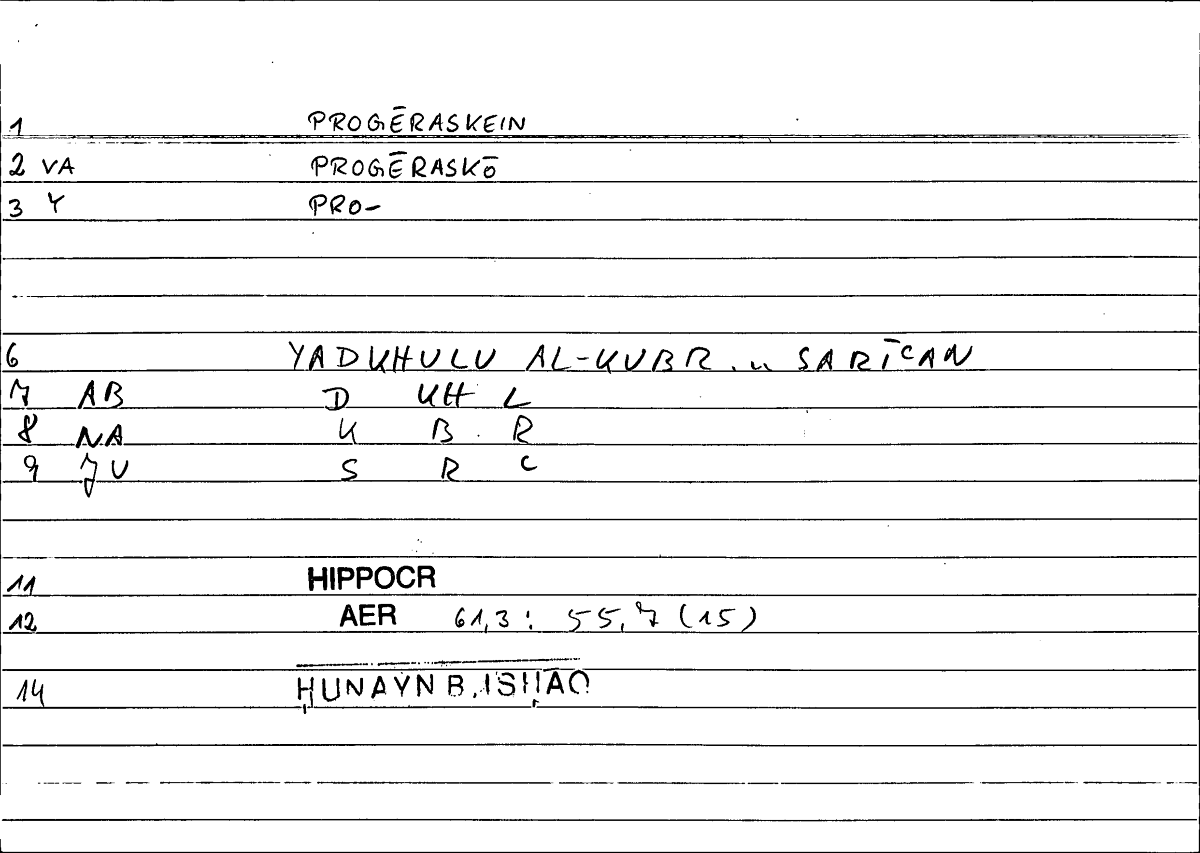 1 PROGĒRASKEIN
2 VA PROGĒRASKŌ
3 Y PRO-
6 YADKHULU AL-KUBR. .. SARĪʿAN
7 AB D KH L
8 NA K B R
9 JU S R ʿ
11 HIPPOCR
12 AER 61,3: 55,7 (15)
14 ḤUNAYN B. ISḤĀQ